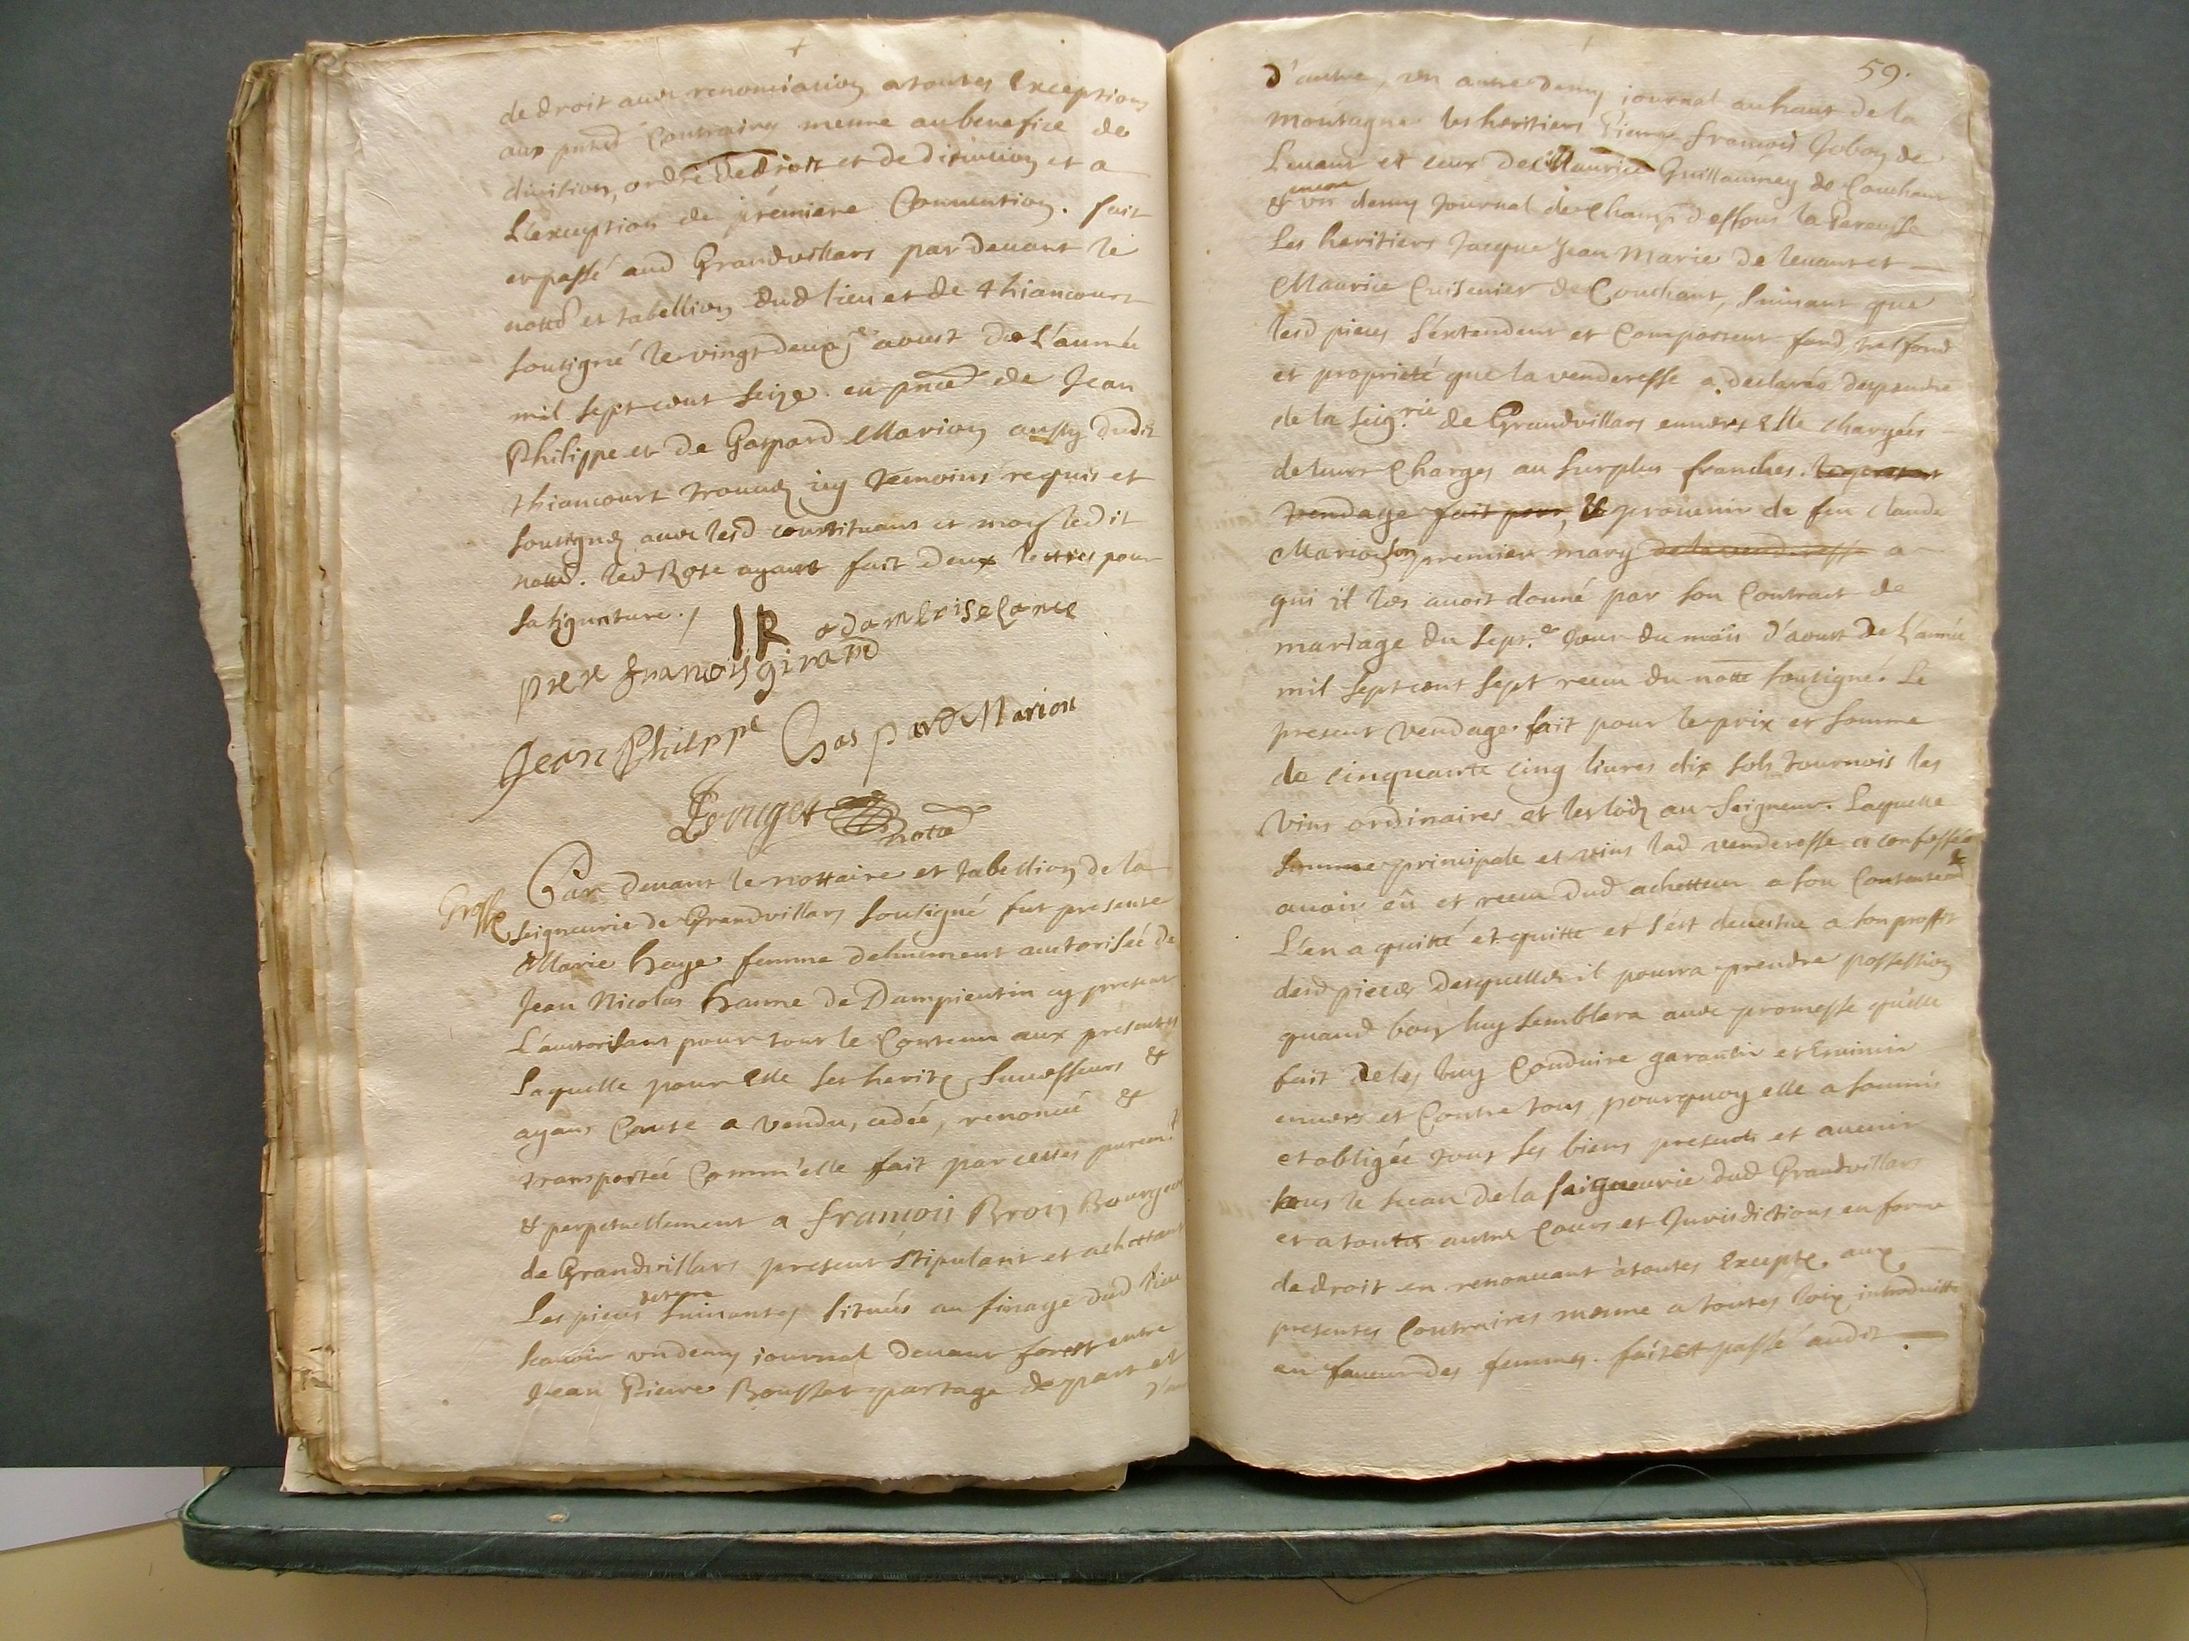 de droit avec renonciation a toutes Exceptions
aux pntes Contraires mesme au benefice de
division, ordre de droit et de discution et a
L'exception de premiere Convention. fait
et passé aud Grandvillars par devant le
nottre et tabellion dud lieu et de thiancourt
soussigné le vingt deuxe aoust de L'année
mil sept cent seize. en pnce de Jean
Philippe et de Gaspard Marion aussy dudit
thiancourt trouvez icy témoins requis et
soussignez avec lesd constituans et moy ledit
nottre. led Rose ayant fait deux lettres pour
sa signature./
IR
piere françois girard
Jean Philippe Gaspard Marion
notre
Grosse
Par devant le nottaire et tabellion de la
seigneurie de Grandvillars soussigné fut presente
Marie haye femme dehuement auctorisée de
Jean Nicolas hanne de Dampientin cy present
L'auctorisant pour tout le Contenu aux presentes
Laquelle pour Elle ses herits successeurs &
ayans Cause a vendu, cedée, renoncé &
transportée Comm'elle fait par cestes purem.t
& perpetuellement a françois Bron Bourgeois
de Grandvillars present stipulant et achettant
Les pieces de terre suivantes situées au finage dud lieu
scavoir un demy journal devant forest entre
Jean Pierre partage de part et
d'au
59.
d'autre, un autre demy journal au haut de la
montagne les heritiers Pierre françois de
Levant et ceux de Maurice Guillaumey de Couchant
& encore un demy Journal de Champs dessous la
Les heritiers Jacque Jean Marie de levant et
Maurice Cuisenier de Couchant, suivant que
lesd pieces s'extendent et Comportent fond, tresfond
et proprieté que la venderesse a declarée despendre
de la seig.rie de Grandvillars envers Elle chargées
de leurs Charges au surplus franches. le present
vendage fait pour, & provenir de feu claude
Marion son premier mary de la venderesse a
qui il les avoit donné par son Contrat de
mariage du sept.e Jour du mois d'aoust de L'année
mil sept cent sept receu du notte soussigné. Le
present vendage fait pour le prix et somme
de cinquante cinq livres dix sols tournois les
vins ordinaires et les lods au Seigneur. Laquelle
somme principale et vins lad venderesse a confessée
avoir eû et receu dud achetteur a son Contentemt &
L'en a quitté et quitte et s'est devestue a son proffit
desd pieces desquelles il pourra prendre possession
quand bon luy semblera avec promesse qu'elle
fait de les luy Conduire garantir et
envers et Contre tous, pourquoy elle a soumis
et obligée tous ses biens presents et avenir
sous le sceau de la seigneurie dud Grandvillars
et a toutes autres Cours et Jurisdictions en forme
de droit en renoncant à toutes Excepts aux
presentes Contraires mesme a toutes loix introduittes
en faveur des femmes. fait et passé audit